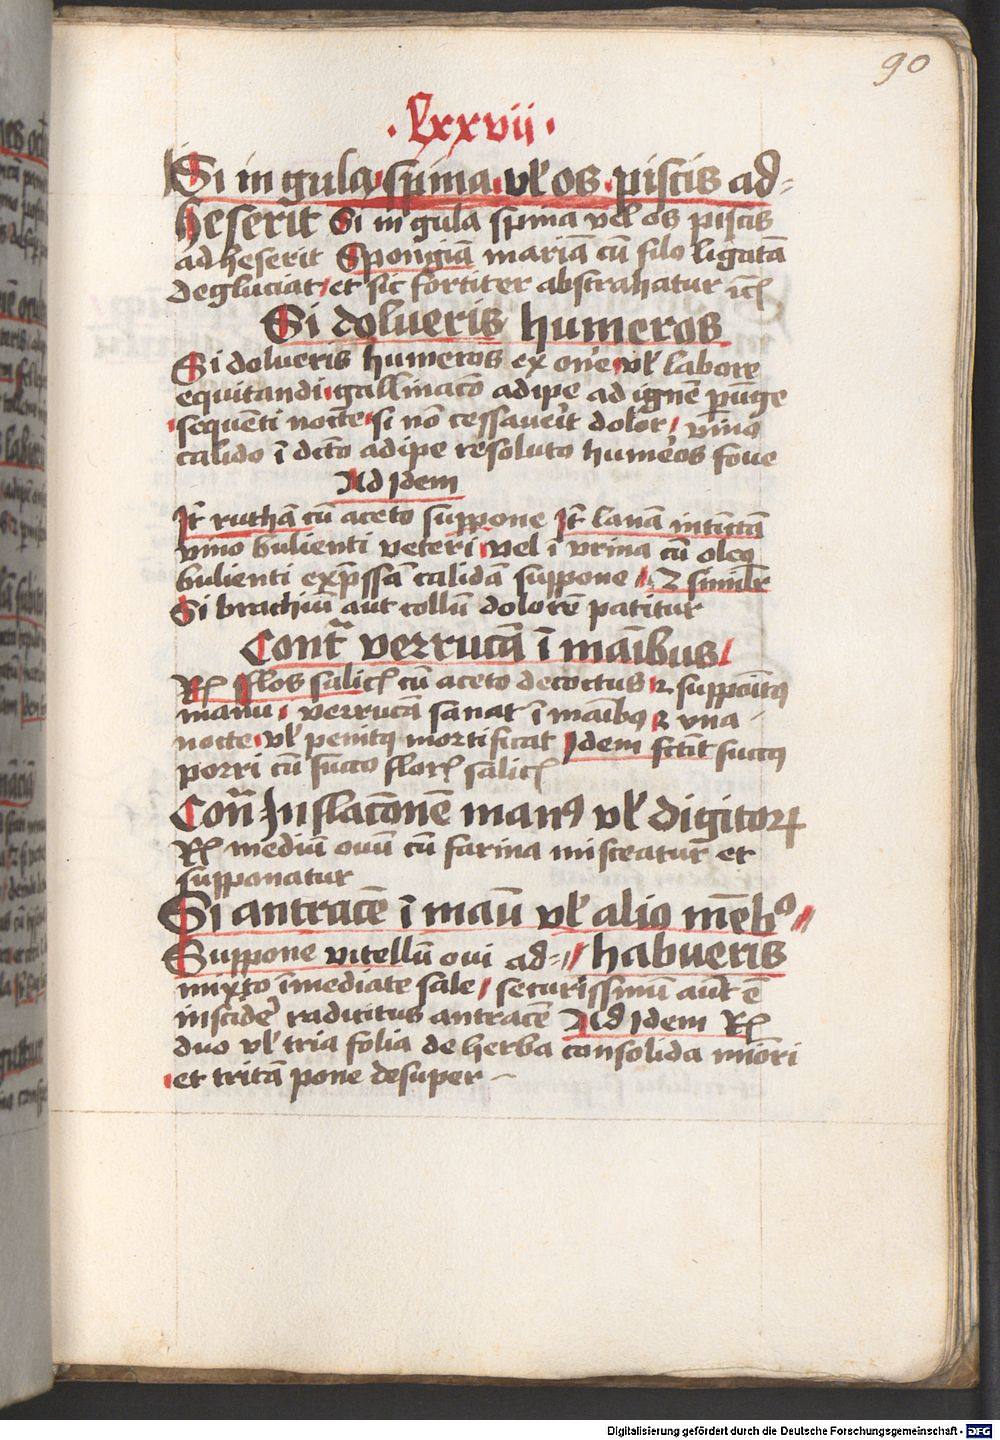 90
· lxxvii ·
Si in gula spina vł os piscis ad=
heserit Si in gula spina vel os piscis
adheserit Spongiā mariā cū filo ligatā
degluciat et sic fortiter abstrahatur
Si dolueris humeros
Si dolueris humeros ex on̄e vł labore
equitandi gallinac̄o adipe ad ignē ꝑūge
sequēti nocte si nō cessaūit dolor / vīno
calido ī dc̄to adipe resoluto hum̄eos foue
Ad Idem
Itꝭ ruthā cū aceto suppone Itꝭ lanā intinctā
vino bulienti veteri vel ī vrina cū oleo
bulienti exp̄ssā calidā suppone // ⁊ simił̄r
Si brachiū aut collū dolorē patitur
Contᵃ verrucā ī māibus /
Rꝭ flos salicꝭ cū aceto decoctus ⁊ supp
manu / verrucā sanat ī māibꝯ ⁊ vna
nocte vł penitꝯ mortificat Idem succꝯ
porri cū succo florꝭ salicꝭ
Con̄ Inflac̄onē manꝯ vł digitoꝝ
Rꝭ mediū ouū cū farina misceatur et
supponatur
Si antracē ī māu vł alio mēbꝰ //
Suppone vitellū oui ad= // habueris
mixto īmediate sale / securissimū aut̄ ē
inscidē radicitus antracē Ad Idem Rꝭ
duo vł tria folia de herba consolida miōri
et tritā pone desuper –
Digitalisierung gefördert durch die Deutsche Forschungsgemeinschaft - DFG